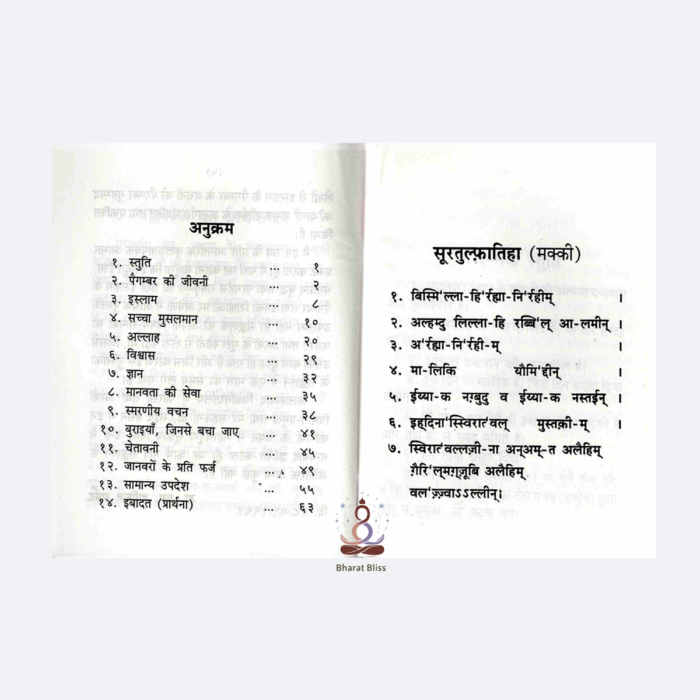 अनुक्रम
१. स्तुति ... १
२. पैगम्बर की जीवनी ... २
३. इस्लाम ... ८
४. सच्चा मुसलमान ... १०
५. अल्लाह ... २०
६. विश्वास ... २९
७. ज्ञान ... ३२
८. मानवता की सेवा ... ३५
९. स्मरणीय वचन ... ३८
१०. बुराइयाँ, जिनसे बचा जाए ... ४१
११. चेतावनी ... ४५
१२. जानवरों के प्रति फर्ज ... ४९
१३. सामान्य उपदेश ... ५५
१४. इबादत (प्रार्थना) ... ६३
सूरतुल्फ़ातिहा (मक्की)
१. बिस्मि'ल्ला-हि'र्रह्मा-नि'र्रहीम् ।
२. अल्हम्दु लिल्ला-हि रब्बि'ल् आ-लमीन् ।
३. अ'र्रह्मा-नि'र्रही-म् ।
४. मा-लिकि यौमि'द्दीन् ।
५. ईय्या-क नग़्बुदु व ईय्या-क नस्तईन् ।
६. इहदिना'स्स्विरात'ल् मुस्तक़ी-म् ।
७. स्विरात'वल्लज़ी-ना अन्अम्-त अलैहिम्
ग़ैरि'ल्मग़ज़ूबि अलैहिम्
वल'ज़्ज़्वाऽऽल्लीन्।
Bharat Bliss